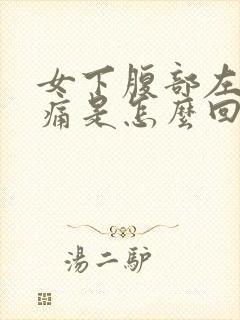 女下腹部左
痛是怎麼回
湯二驴